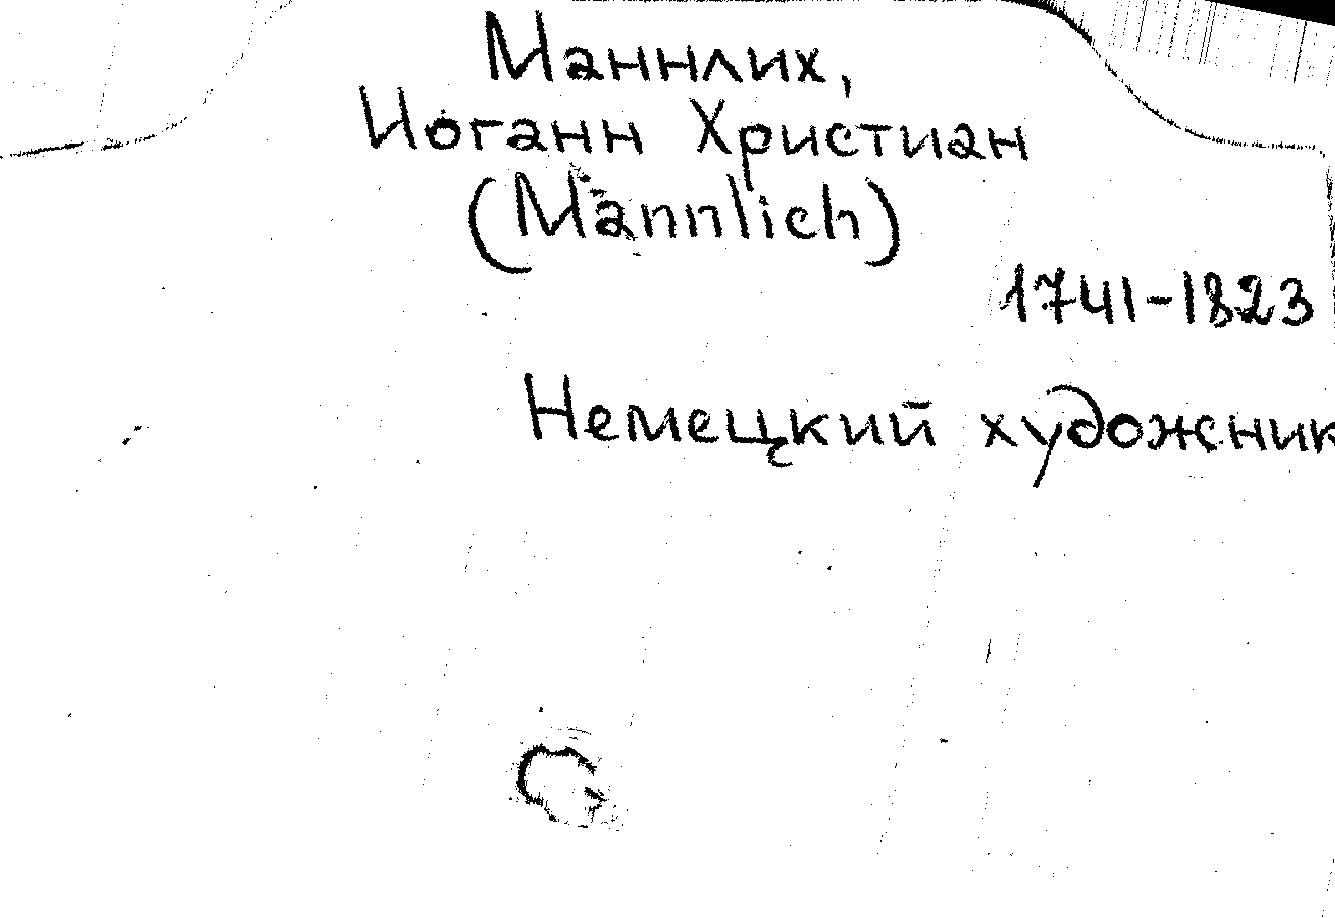 Маннлих,
Иоганн Христиан
(Mannlich)
1741-1823
Немецкий художник